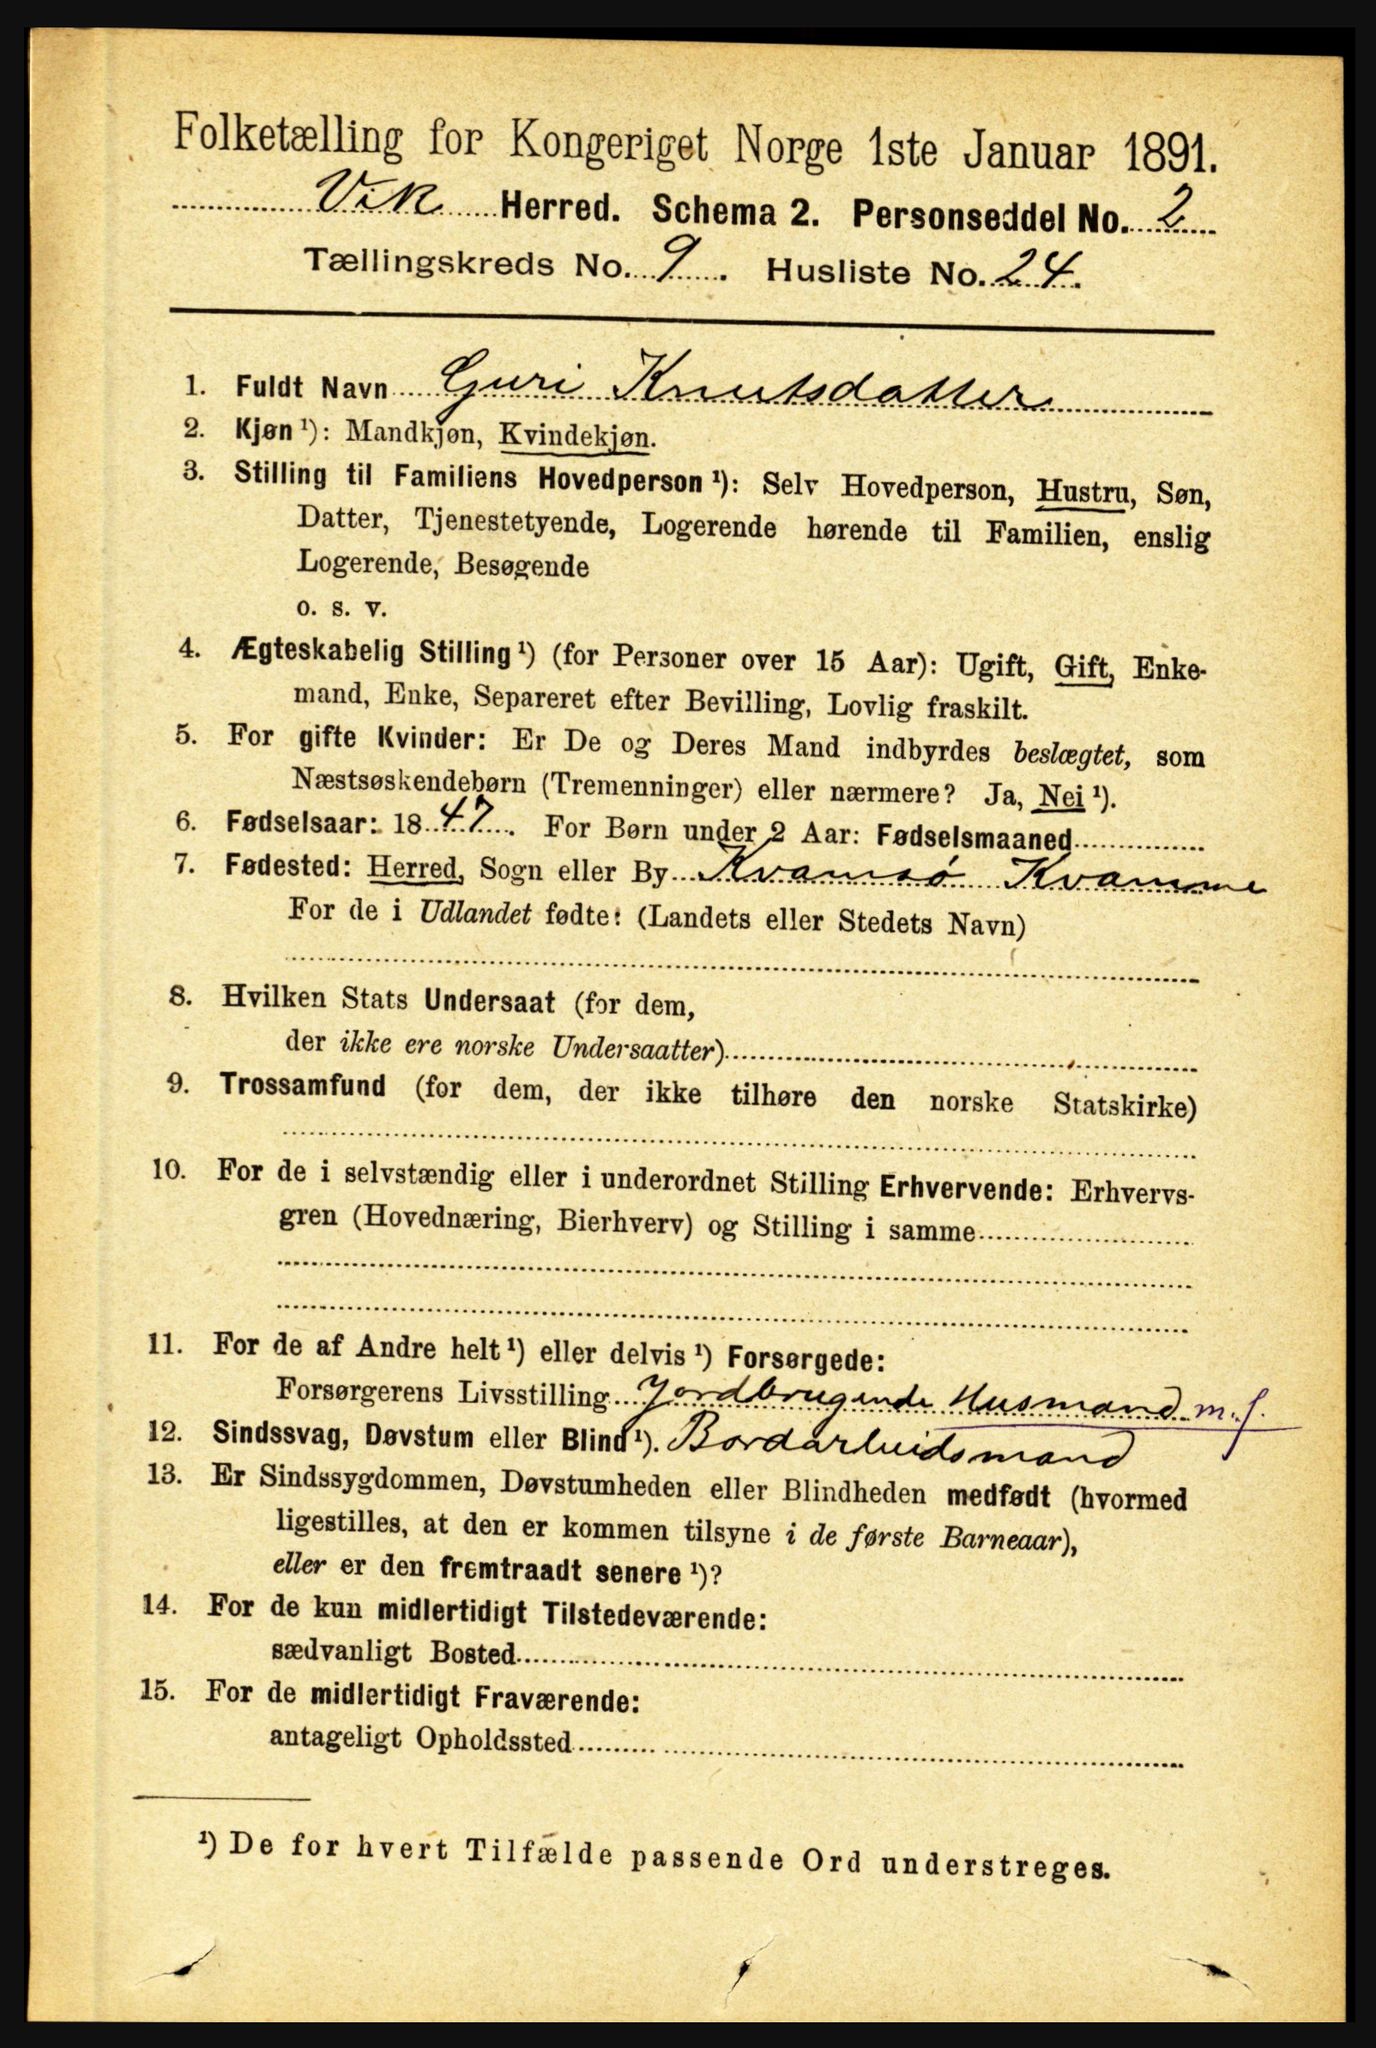 Folketælling for Kongeriget Norge 1ste Januar 1891.
Vik Herred. Schema 2. Personseddel No. 2
Tællingskreds No. 9. Husliste No. 24.
1. Fuldt Navn Guri Knutsdatter
2. Kjøn ¹): Mandkjøn, Kvindekjøn.
3. Stilling til Familiens Hovedperson ¹): Selv Hovedperson, Hustru, Søn,
Datter, Tjenestetyende, Logerende hørende til Familien, enslig
Logerende, Besøgende
o. s. v.
4. Ægteskabelig Stilling ¹) (for Personer over 15 Aar): Ugift, Gift, Enke-
mand, Enke, Separeret efter Bevilling, Lovlig fraskilt.
5. For gifte Kvinder: Er De og Deres Mand indbyrdes beslægtet, som
Næstsøskendebørn (Tremenninger) eller nærmere? Ja, Nei ¹).
6. Fødselsaar: 1847. For Børn under 2 Aar: Fødselsmaaned
7. Fødested: Herred, Sogn eller By Kvamsø Kvamme
For de i Udlandet fødte: (Landets eller Stedets Navn)
8. Hvilken Stats Undersaat (for dem,
der ikke ere norske Undersaatter)
9. Trossamfund (for dem, der ikke tilhøre den norske Statskirke)
10. For de i selvstændig eller i underordnet Stilling Erhvervende: Erhvervs-
gren (Hovednæring, Bierhverv) og Stilling i samme
11. For de af Andre helt ¹) eller delvis ¹) Forsørgede:
Forsørgerens Livsstilling Jordbrugende Husmand m. f.
12. Sindssvag, Døvstum eller Blind ¹). Bordarbeidsmand
13. Er Sindssygdommen, Døvstumheden eller Blindheden medfødt (hvormed
ligestilles, at den er kommen tilsyne i de første Barneaar),
eller er den fremtraadt senere ¹)?
14. For de kun midlertidigt Tilstedeværende:
sædvanligt Bosted
15. For de midlertidigt Fraværende:
antageligt Opholdssted
¹) De for hvert Tilfælde passende Ord understreges.